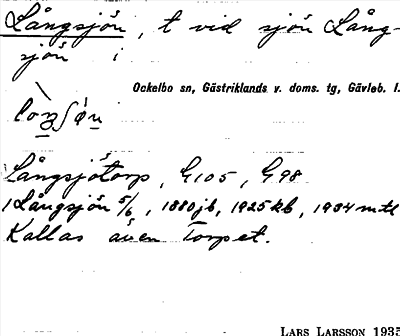 Långsjön, t vid sjön Lång-
sjön i
Ockelbo sn, Gästriklands v. doms. tg, Gävleb. l.
Långsjötorp, G105, G98
1 Långsjön 5/6, 1880jb, 1925kb, 1934mtl
Kallas även Torpet.
LARS LARSSON 1935